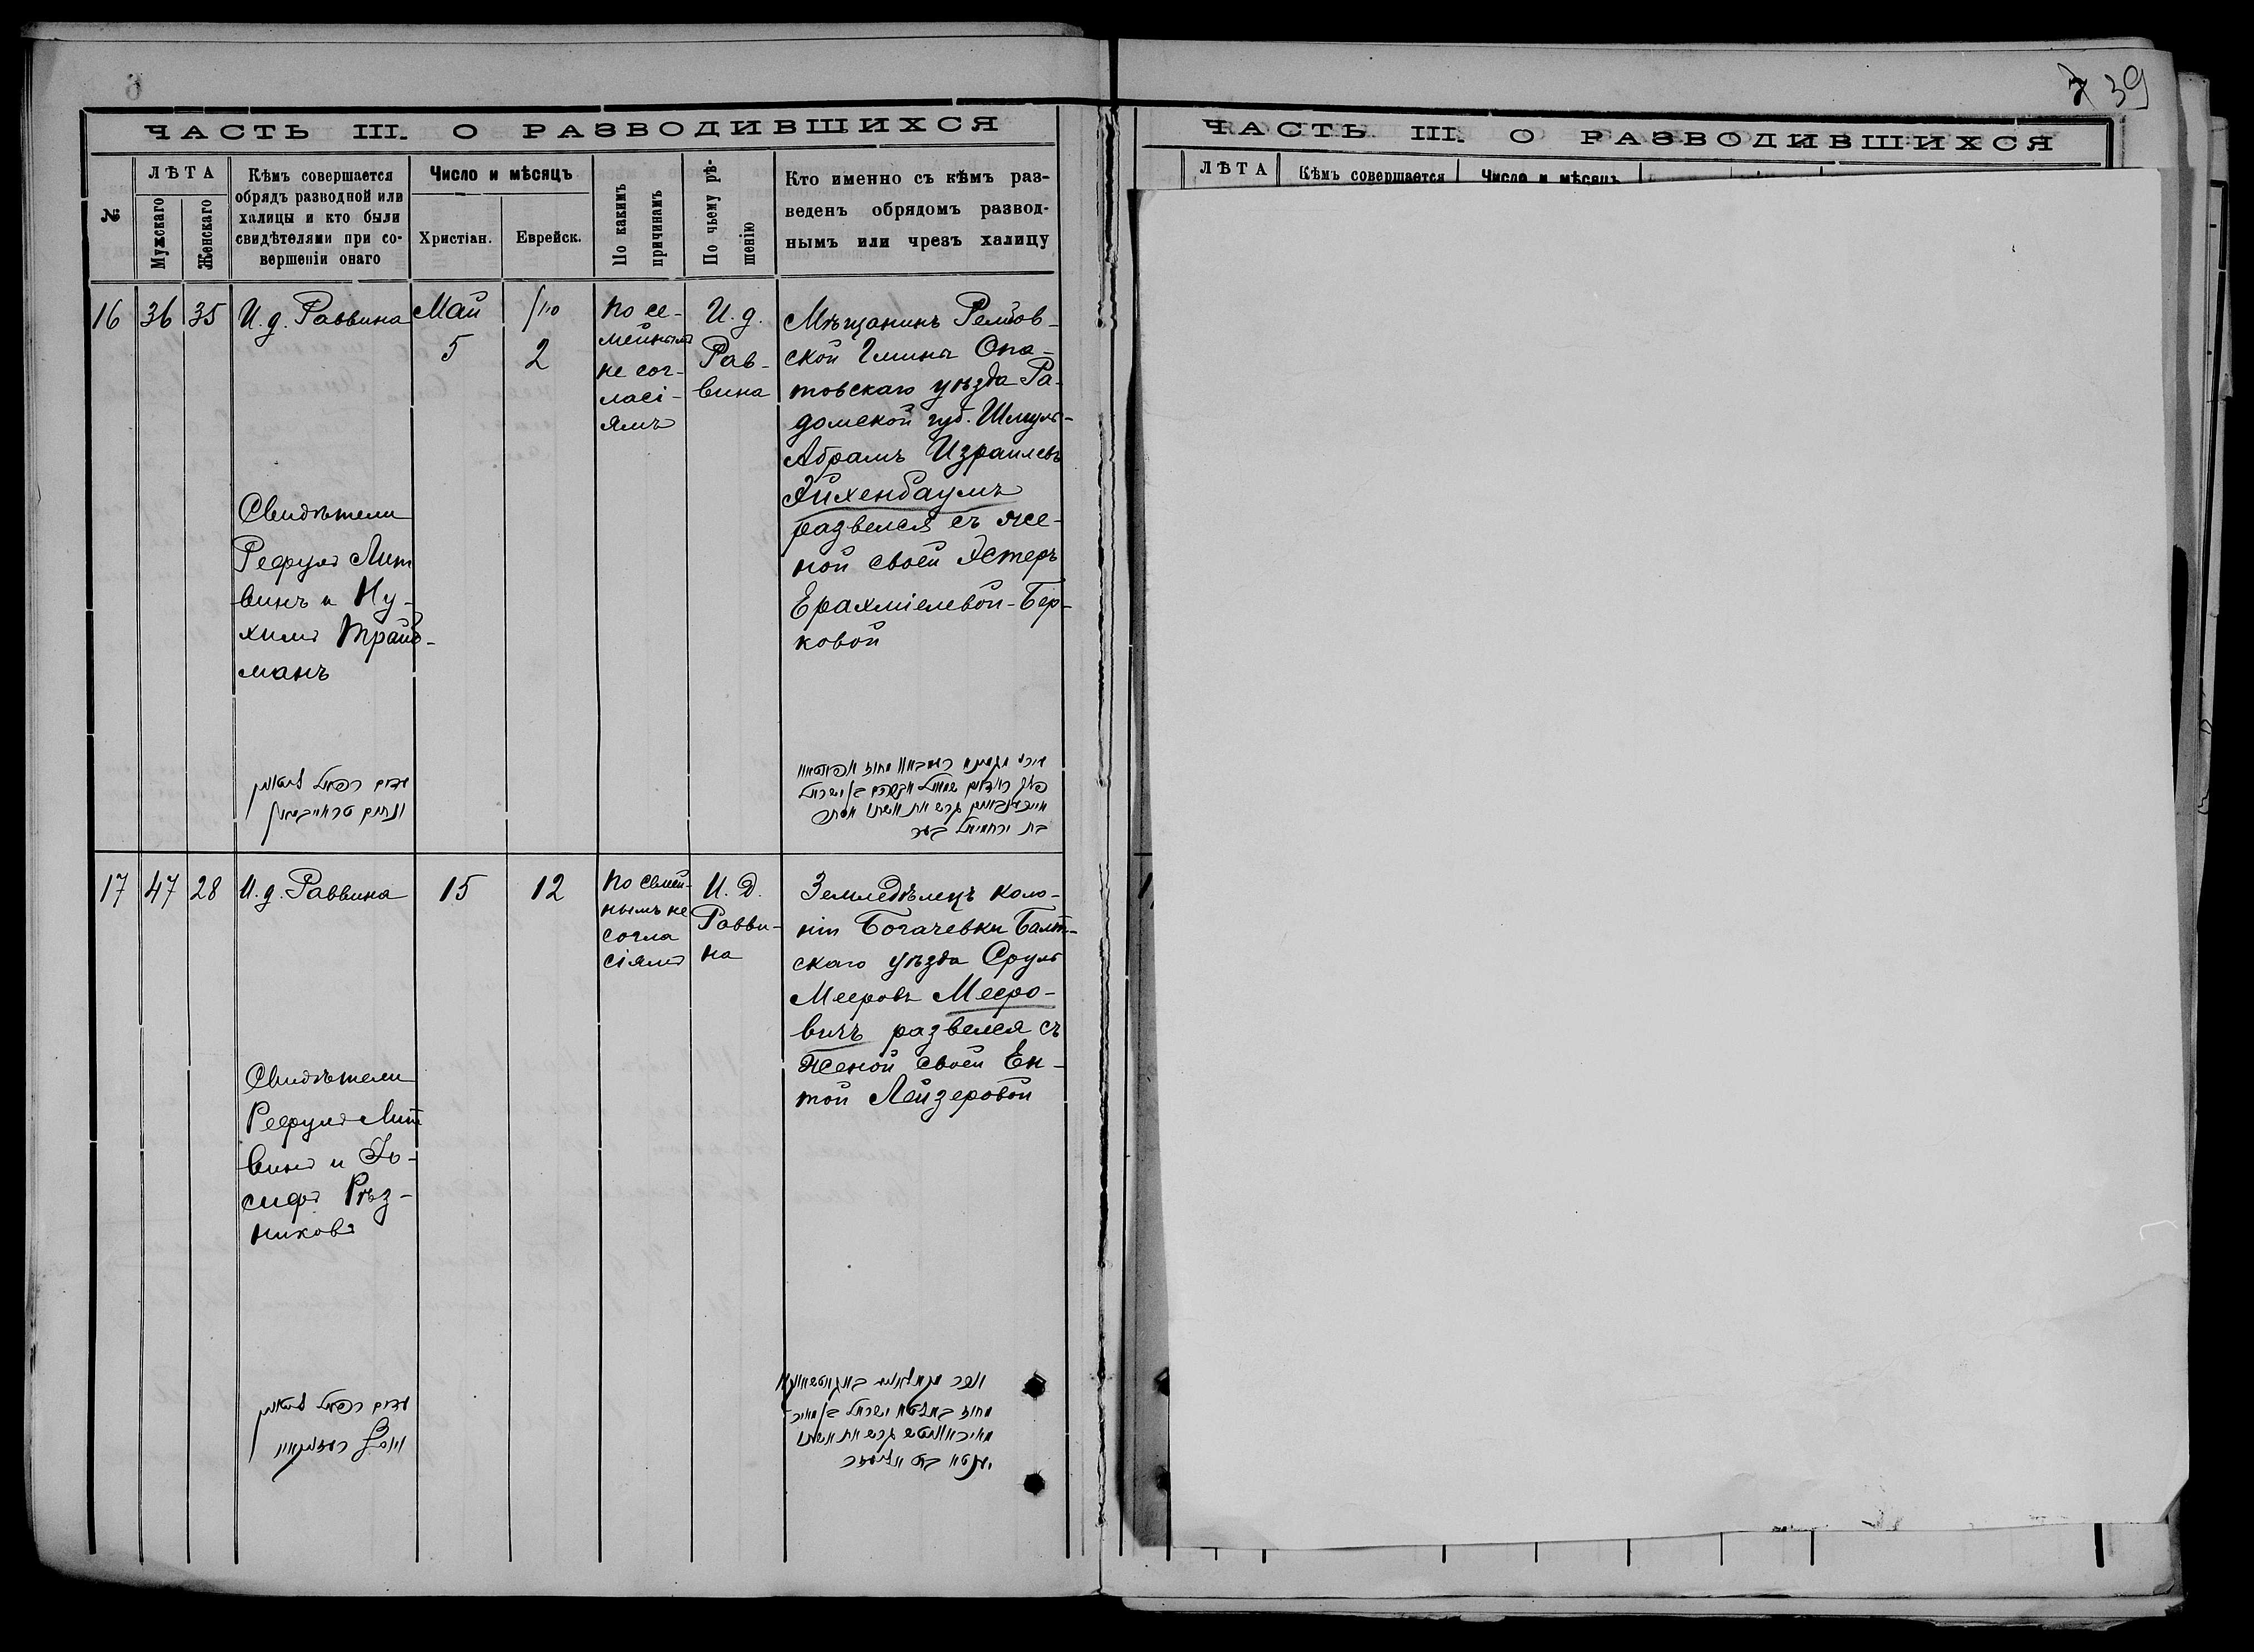 6
ЧАСТЬ III. О РАЗВОДИВШИХСЯ
№
ЛѢТА
Мужскаго
Женскаго
Кѣмъ совершается
обрядъ разводной или
халицы и кто были
свидѣтелями при со-
вершеніи онаго
Число и мѣсяцъ
Христіан.
Еврейск.
По какимъ
причинамъ
По чьему рѣ-
шенію
Кто именно съ кѣмъ раз-
веденъ обрядомъ развод-
нымъ или чрезъ халицу
16
36
35
И. д. Раввина
Свидѣтели
Рефулъ Лит
винъ и Ну-
химъ Трайб-
манъ
עדים רפאל ליטווין
ונחום טרייבמאן
Май
5
2
по се-
мейнымъ
не сог-
ласі-
ямъ
И. д.
Рав-
вина
Мѣщанинъ
ской Гмины Опа-
товскаго уѣзда Ра-
домской губ. Шмуль-
Абрамъ Израилевъ
Айхенбаумъ
развелся съ же-
ной своей Эстеръ
Ерахміелевой-Бер-
ковой
17
47
28
И. д. Раввина
Свидѣтели
Рефулъ Лит
винъ и Іо-
сифъ Рѣз-
никовъ
עדים רפאל ליטווין
ויוסף רעזניקאוו
15
12
по семей-
нымъ не
согла
сіямъ
И. Д.
Равви-
на
Земледѣлецъ коло-
ніи Богачевки Балт-
скаго уѣзда Сруль
Мееровъ Мееро-
вичъ развелся съ
женой своей Ен-
той Лейзеровой
מחוז באלטא ישראל בן מאיר
מאיראוויטש גרש את אשתו
7 39
ЧАСТЬ III. О РАЗВОДИВШИХСЯ
ЛѢТА
Кѣмъ совершается
Число и мѣсяцъ